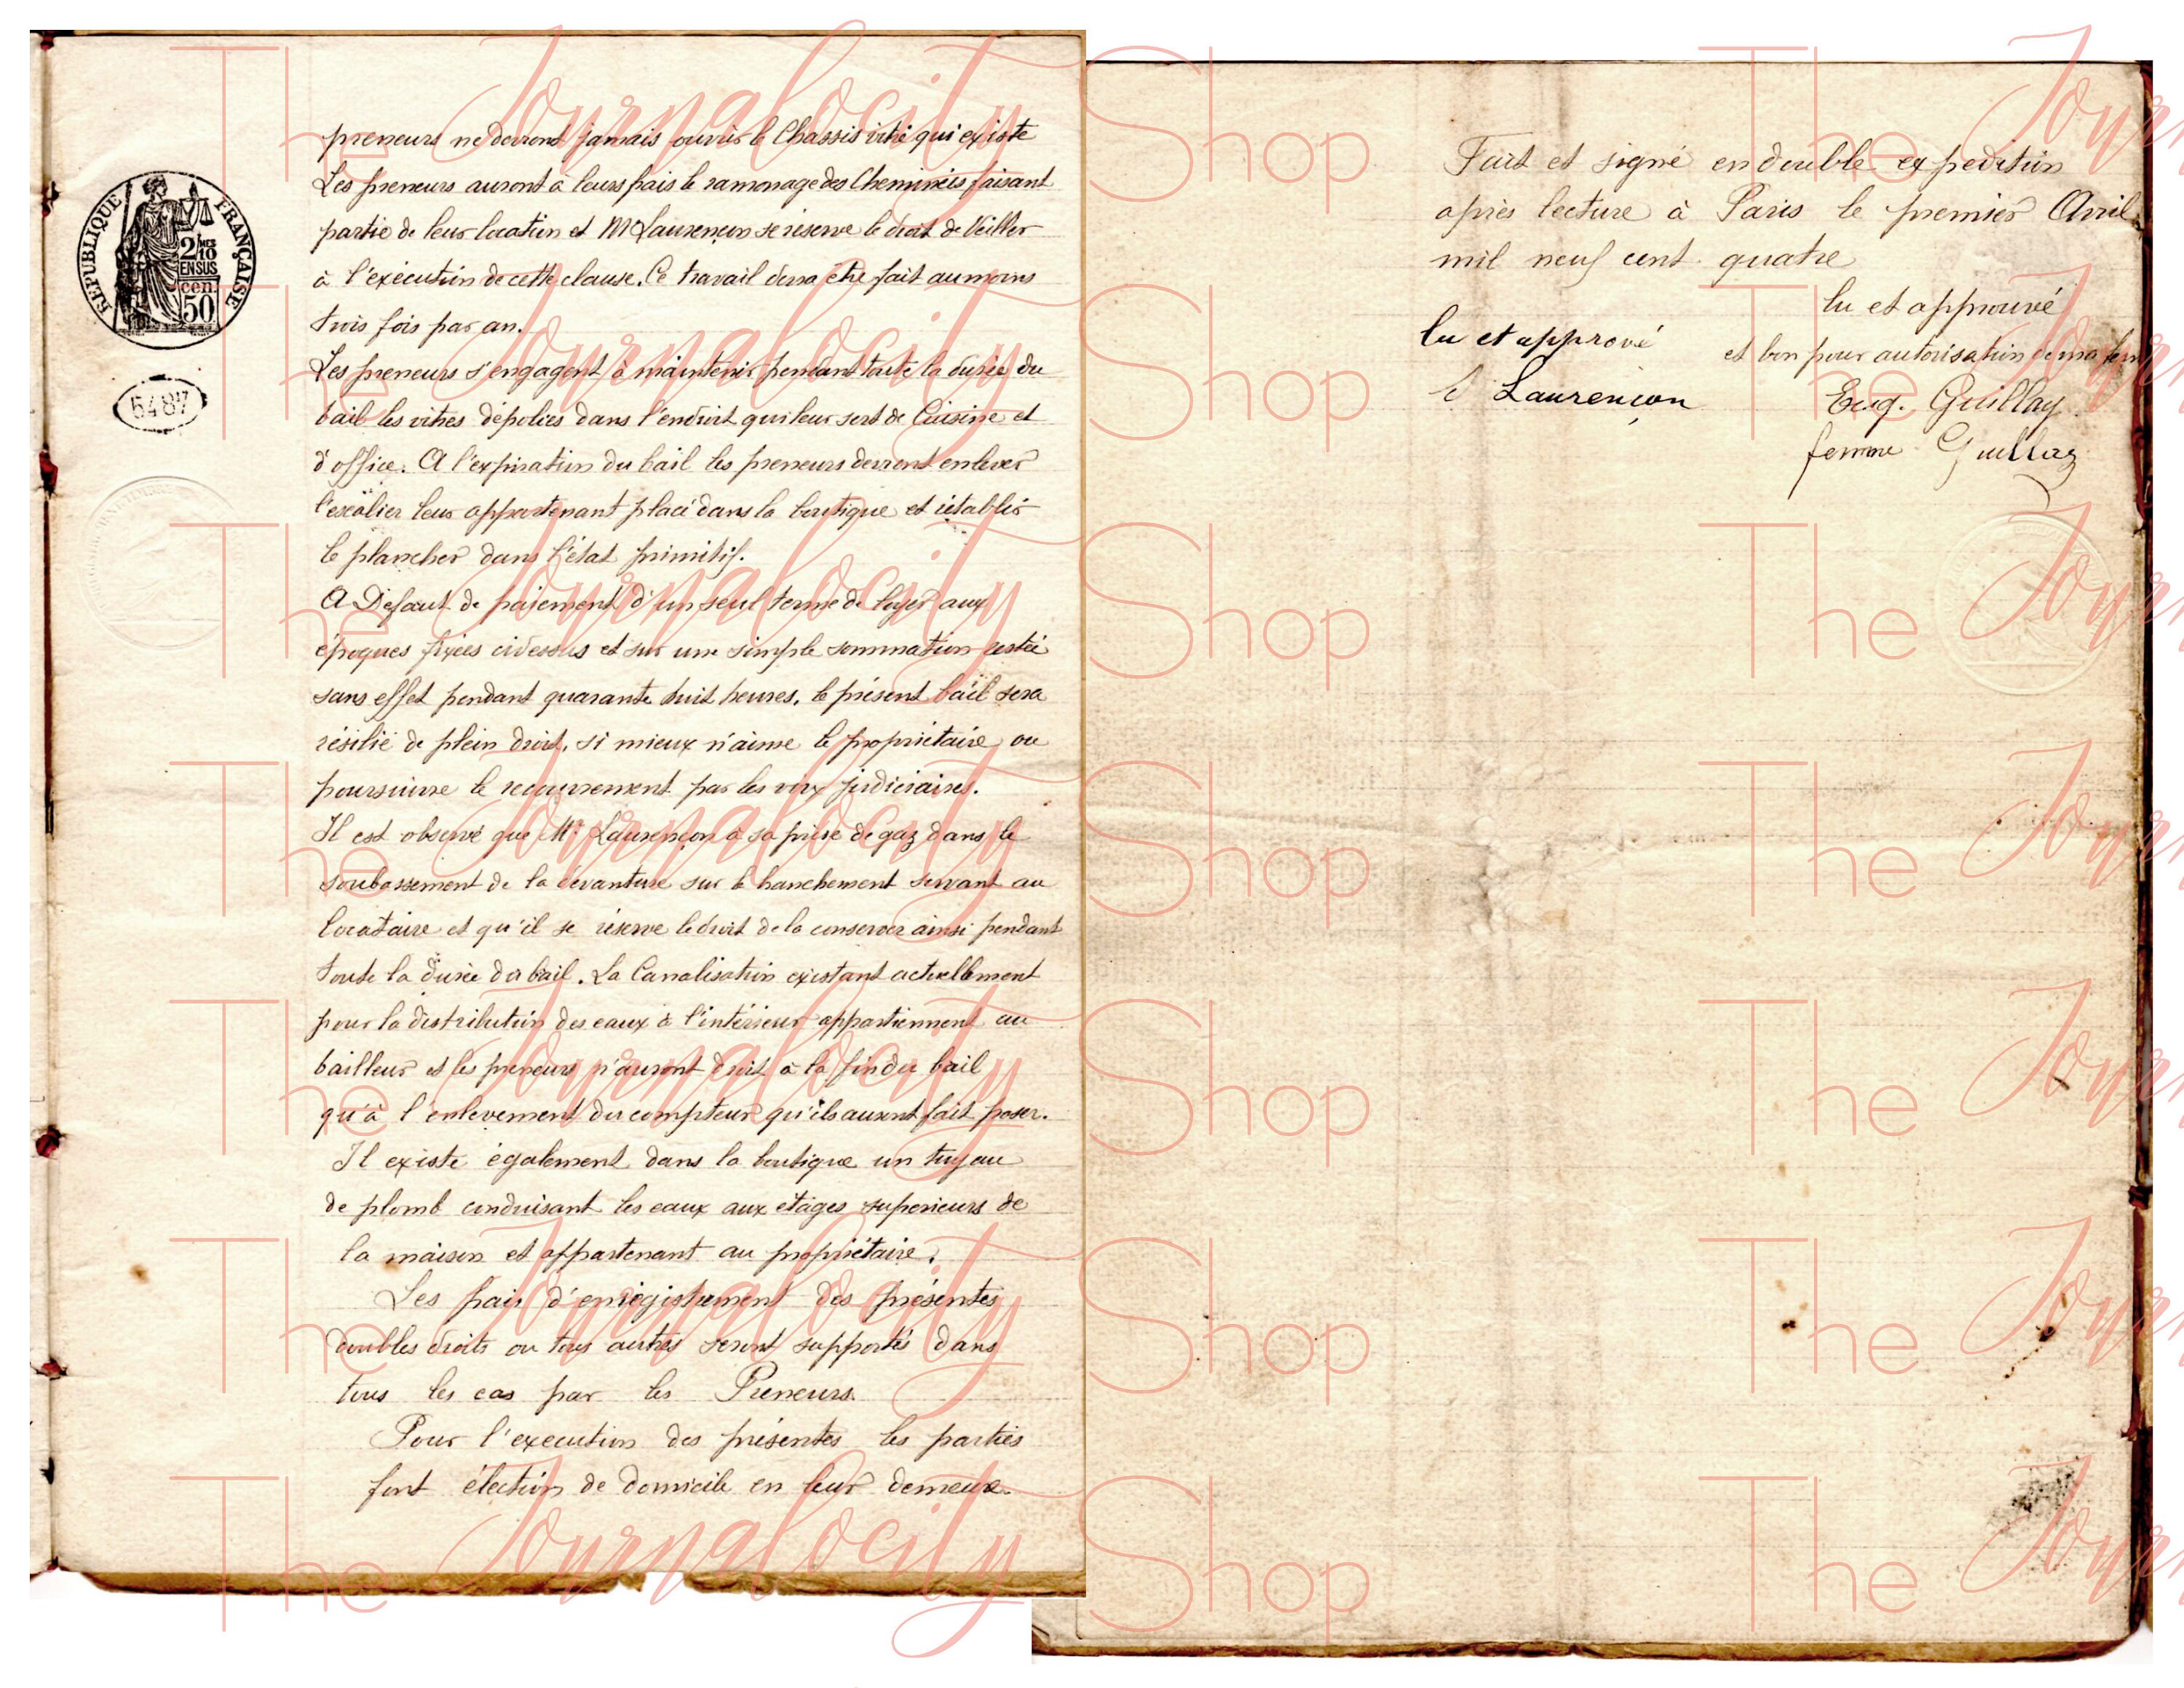 preneurs ne devront jamais ouvrir le Chassis vitré qui existe
Les preneurs auront à leurs frais le ramonage des Cheminées faisant
partie de leur location et M Laurençon se réserve le droit de Veiller
à l'exécution de cette clause. Ce travail devra être fait au moins
trois fois par an.
Les preneurs s'engagent à maintenir pendant toute la durée du
bail les vitres dépolies dans l'endroit qui leur sert de Cuisine et
d'office. A l'expiration du bail les preneurs devront enlever
l'escalier leur appartenant placé dans la boutique et rétablir
le plancher dans l'état primitif.
A Défaut de paiement d'un seul terme de loyer aux
époques fixées cidessus et sur une simple sommation restée
sans effet pendant quarante huit heures, le présent bail sera
résilié de plein droit, si mieux n'aime le propriétaire ou
poursuivre le recouvrement par les voix judiciaires.
Il est observé que Mr Laurençon a sa prise de gaz dans le
soubassement de la devanture sur le branchement servant au
locataire et qu'il se réserve le droit de la conserver ainsi pendant
toute la durée du bail. La Canalisation existant actuellement
pour la distribution des eaux à l'intérieur appartiennent au
bailleur et les preneurs n'auront droit à la fin du bail
qu'à l'enlevement du compteur qu'ils auront fait poser.
Il existe également dans la boutique un tuyau
de plomb conduisant les eaux aux étages superieurs de
la maison et appartenant au propriétaire.
Les frais d'enregistrement des présentes
doubles droits ou tous autres seront supportés dans
tous les cas par les Preneurs.
Pour l'execution des présentes les parties
font élection de domicile en leur demeure.
REPUBLIQUE FRANÇAISE
2/10mes
EN SUS
50 cen
5487
Fait et signé en double expedition
après lecture à Paris le premier Avril
mil neuf cent quatre
lu et approuvé
et bon pour autorisation de ma fem
Eug. Guillay
femme Guillaz
lu et apprové
Laurençon
The Journalocity Shop